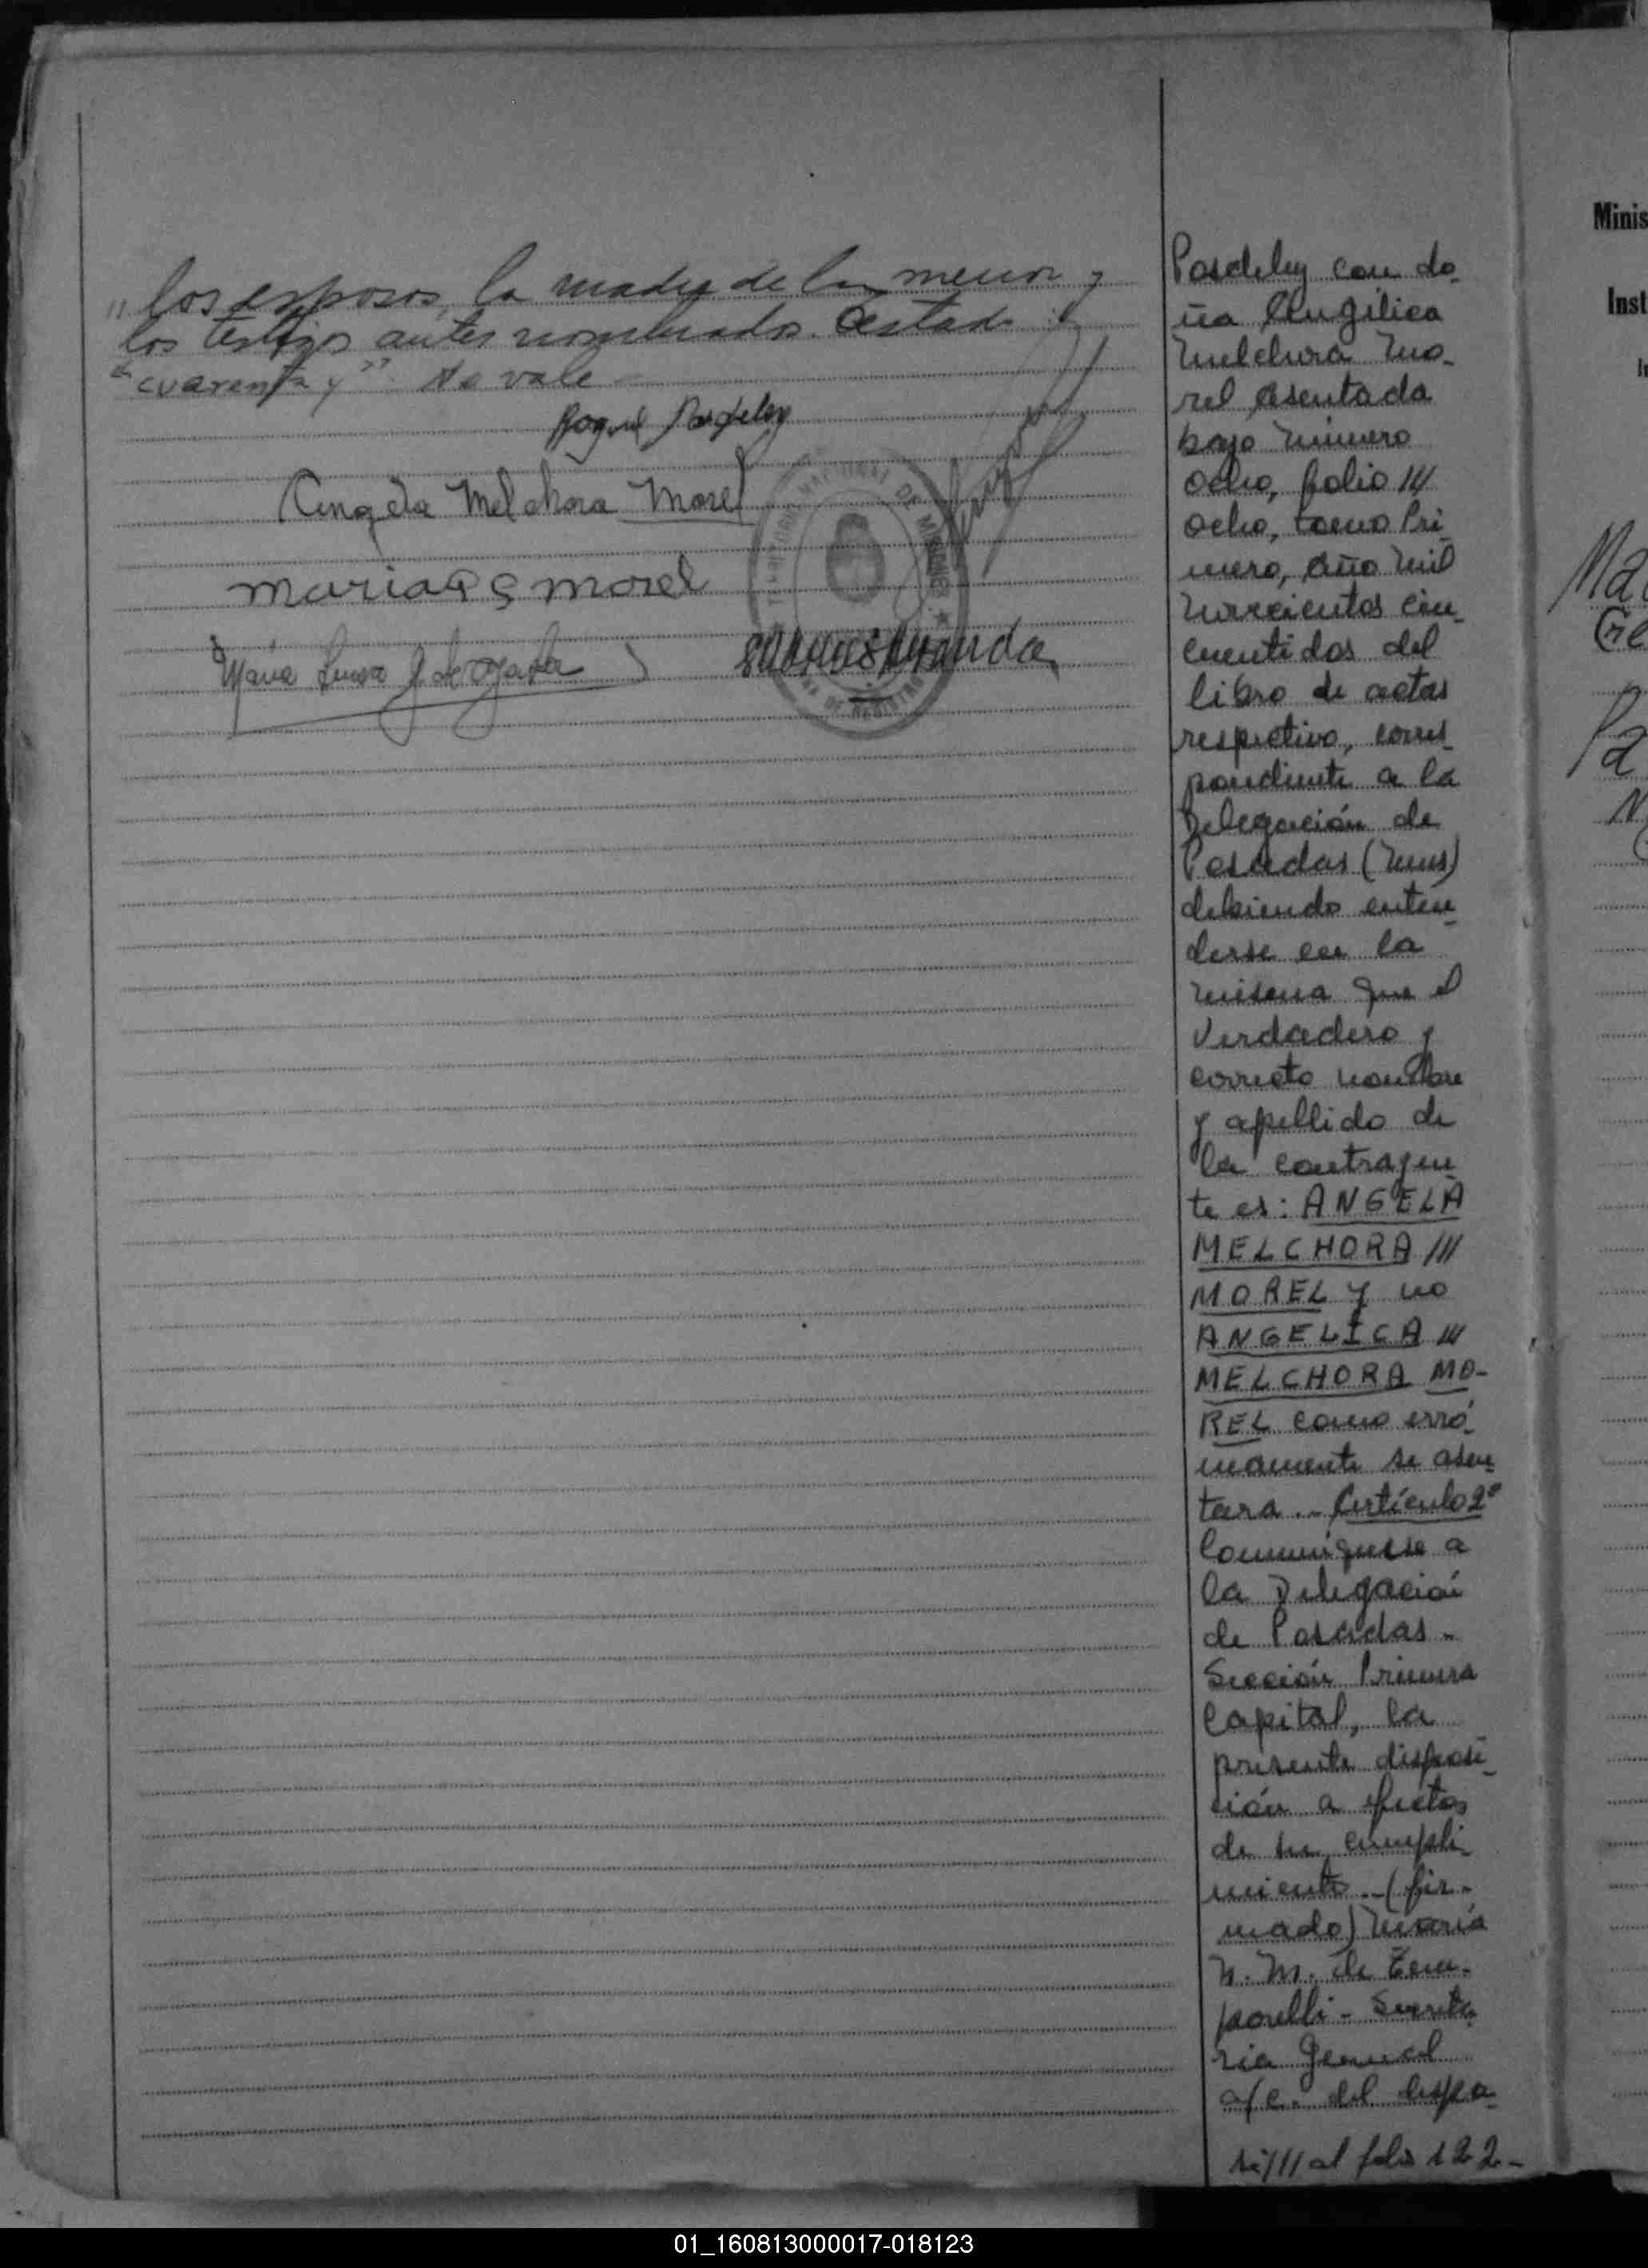 "los esposos, la madre de la menor y
los testigos antes nombrados. Testado:
"cuarenta y" No vale
Angela Melchora Morel
Maria Morel
Maria Luisa
DE MISIONES
DE REGISTRO
Posdeley con do-
ña Angélica
Melchora Mo-
rel asentada
bajo número
ocho, folio ///
ocho, tomo Pri
mero, año mil
novecientos cin-
cuentidos del
libro de actas
respectivo, corres
pondiente a la
Delegación de
Posadas (Mnes)
debiendo enten
derse en la
misma que el
verdadero y
correcto nombre
y apellido de
la contrayen
te es: ANGELA
MELCHORA ///
MOREL y no
ANGELICA ///
MELCHORA MO-
REL como erró-
neamente se asen
tara.- Artículo 2º
Comuníquese a
la Delegación
de Posadas -
Sección Primera
Capital, la
presente disposi
ción a efectos
de su cumpli-
miento.- (fir-
mado) María
N. M. de Tem-
porelli - Secreta
ria General
a/c. del despa-
si/// al folio 122-
Minis
Inst
01_160813000017-018123